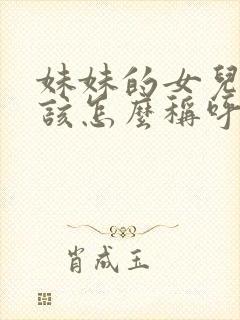 妹妹的女兒
該怎麼稱呼
肖成玉